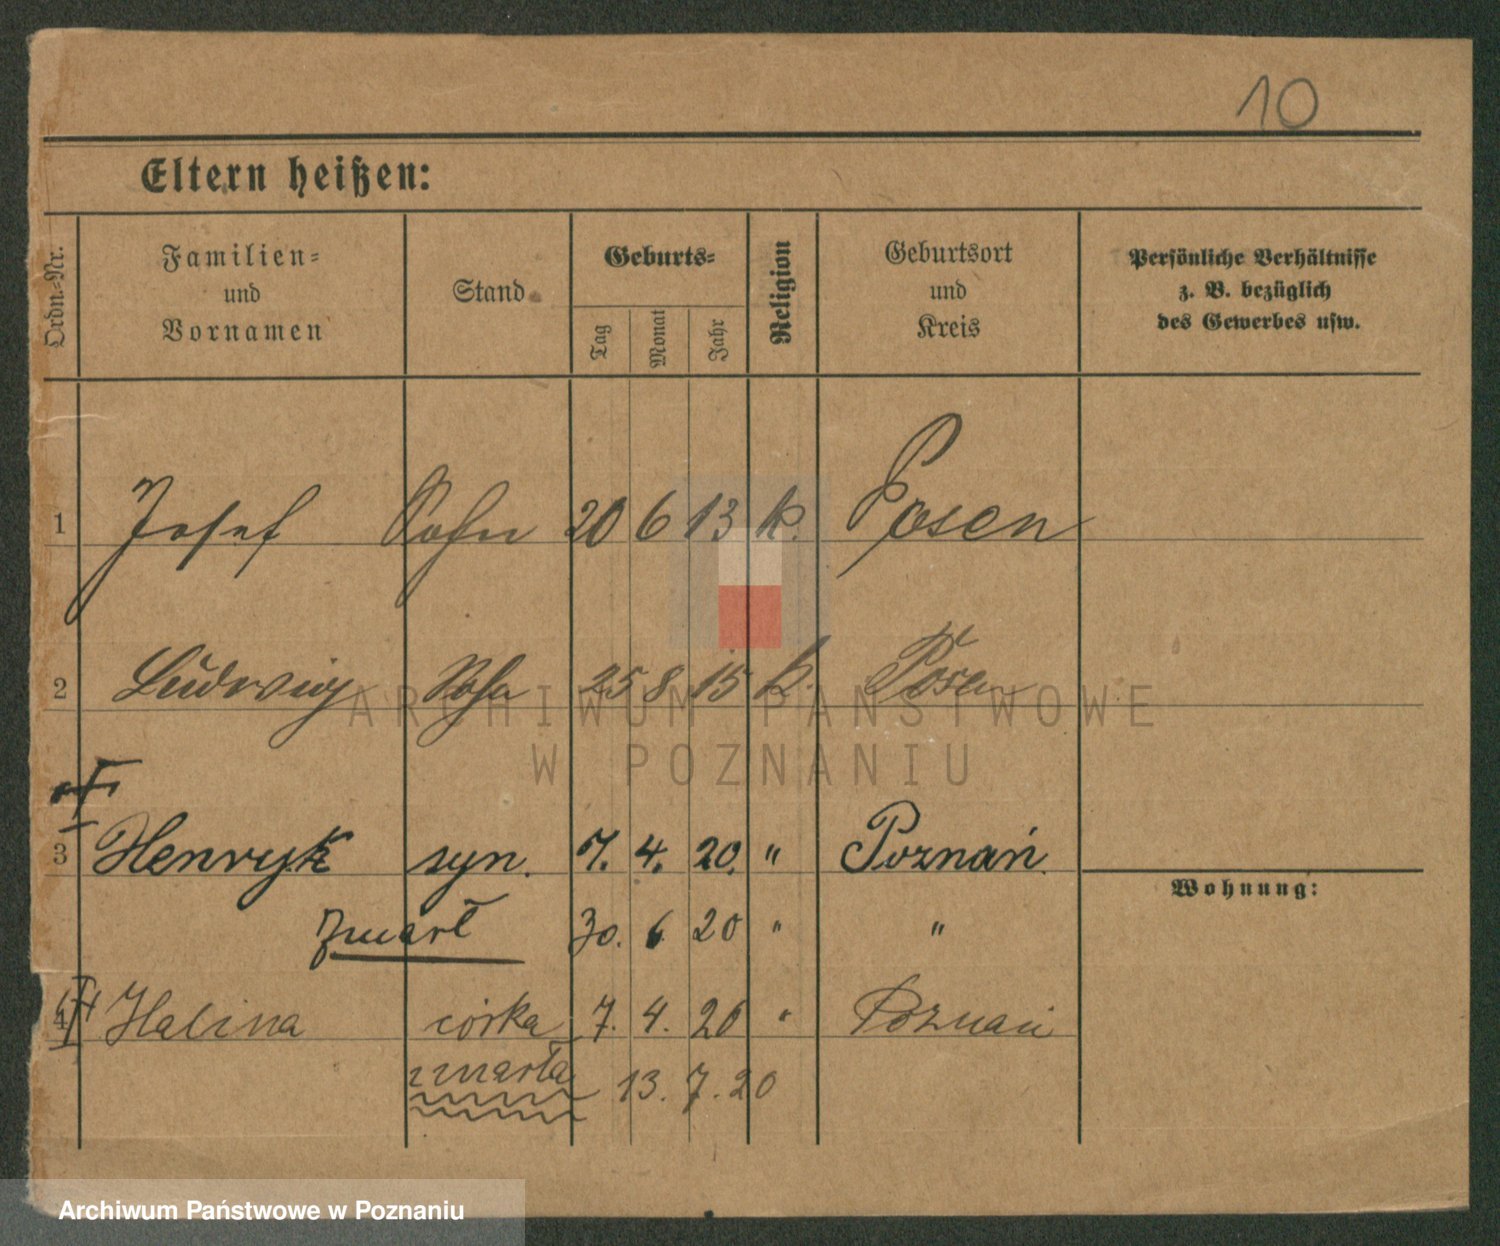 10
Eltern heißen:
Ordn.-Nr.
Familien= und Vornamen
Stand
Geburts=
Tag
Monat
Jahr
Religion
Geburtsort und Kreis
Persönliche Verhältnisse
z. B. bezüglich
des Gewerbes usw.
1 Josef Sohn 20 6 13 k. Posen
2 Ludwig Sohn 25 8 15 k. Posen
ARCHIWUM PAŃSTWOWE
W POZNANIU
3 Henryk syn. 7. 4. 20. " Poznań.
Wohnung:
zmarł 30. 6. 20 " "
4 Halina córka 7. 4. 20 " Poznań
zmarła 13. 7. 20
Archiwum Państwowe w Poznaniu